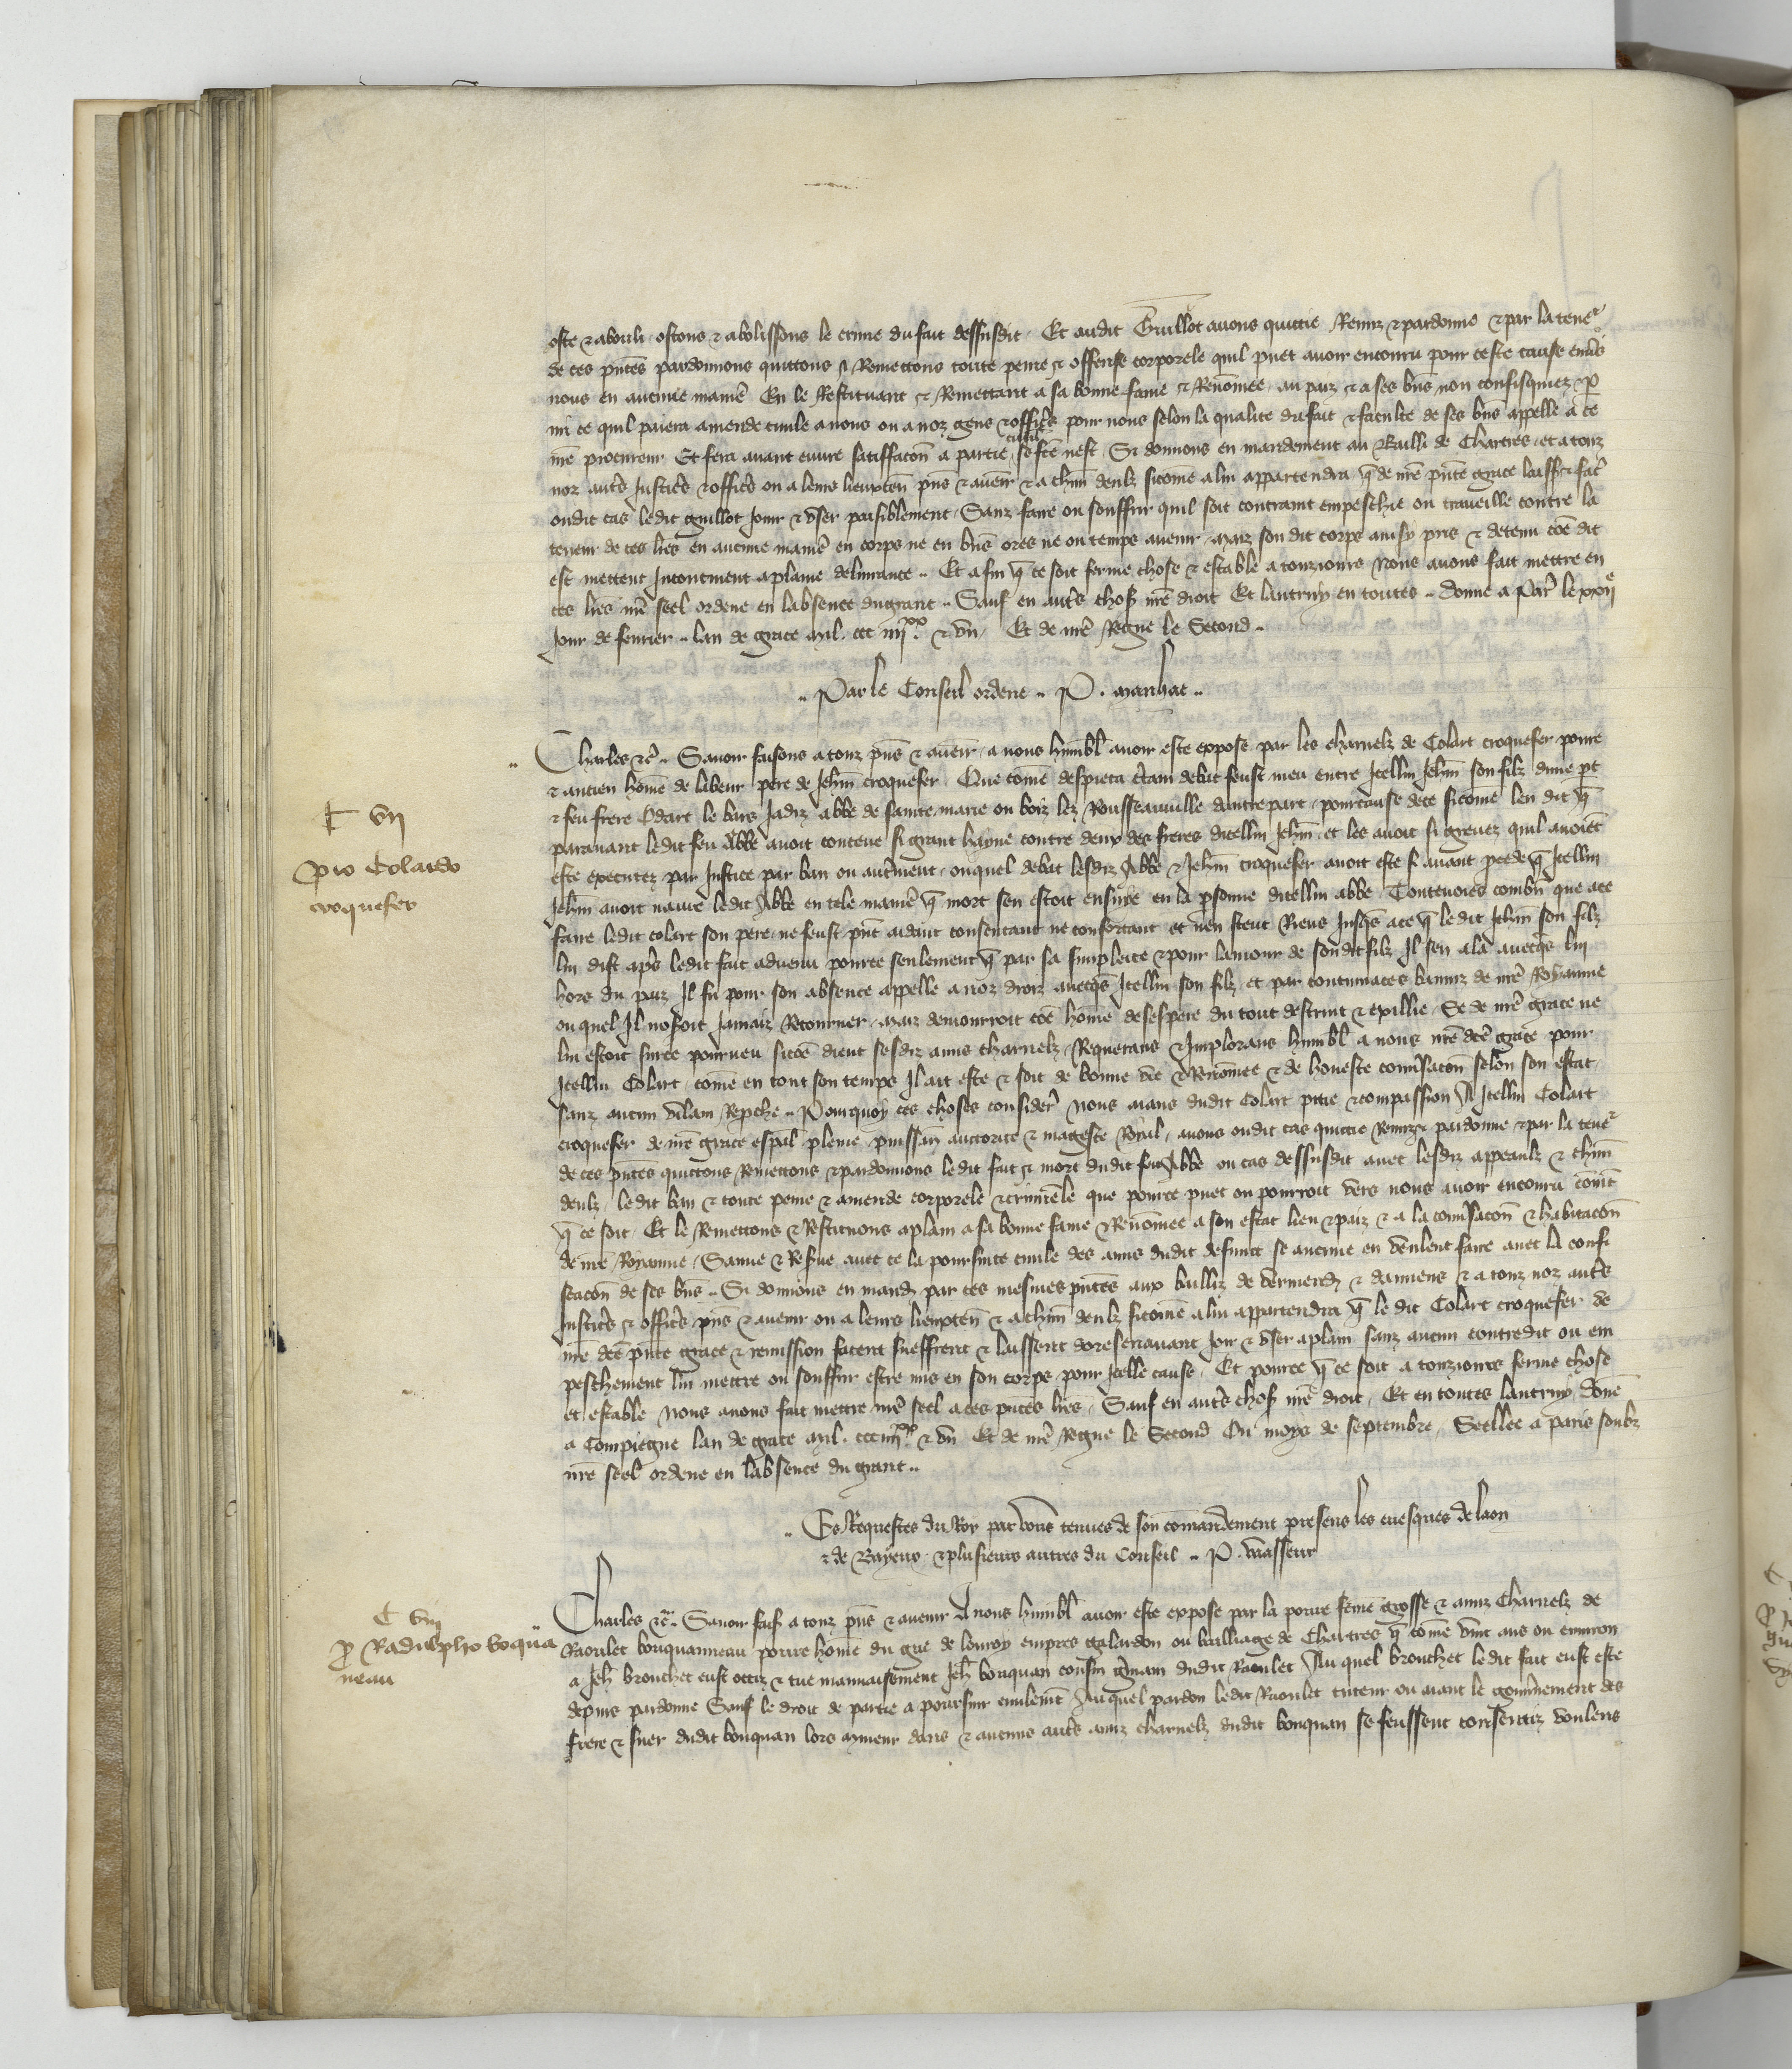 oste & abouli ostons & abolissons le crime du fait dessusdit. Et audit Guillot avons quictie Remiz & pardonne & par la tene͛
de ces pn̄tes pardonnons quictons & Remettons toute peine & offense corporele quil puet avoir encouru pour ceste cause enũs
nous en aucune manie͛ En le Restituant & Remettant a sa bonne fame & Renōmee au paiz & a ses biēs non confisquiez p
mi ce quil paiera amende civile a nous ou a noz gens & offic̃s pour nous selon la qualite du fait & faculte de ses biēs appelle a ce
nr̄e procureur Et fera avant euvre satisfacōn a partie civile se fc̄e nest Si donnons en mandement au Bailli de Chartres et a touz
noz aut̃s Justic̃s & offic̃s ou a leurs lieuxten̄ pn̄s & aven̄ir & a chun̄ deulz sicōme a lui appartendra q̄ de nr̄e pn̄te grace laissē & fac̃
oudit cas ledit guillot Joir & user paisiblement Sanz faire ou souffrir quil soit contraint empeschie ou traveille contre la
teneur de ces lr̄es en aucune manie͛ en corps ne en biēs ores ne ou temps avenir maiz son dit corps ainsy pris & detenu cōe dit
est mettent Incontinent a plaine delivrance .. Et afin q̄ ce soit ferme chose & estable a touziours Nous avons fait mettre en
ces lr̄es nr̄e seel ordene en labsence du grant .. Sauf en aut̃s choses nr̄e droit Et lautruy en toutes .. Donne a Par̃ le xxiie
Jour de fevrier .. lan de grace mil. ccc iiijxx. & un, Et de nr̄e Regne le Second ..
.. Par le Conseil ordene .. P. manhac ..
Charles &c̃ .. Savoir faisons a touz pn̄s & aven̄ir a nous humbl̄ avoir este expose par les charnelz de Colart croquefer povre
& ancien hōme de labeur pere de Jehan̄ croquefer Que cōme despieca c̃tain debat feust meu entre Icellui Jehan̄ son filz dune p̱t
& feu frere Odart le bars Jadiz abbe de sainte marie ou boiz lez Rousseauville dautre part pour cause de ce sicōme len dit q̄
paravant ledit feu abbe avoit conceue si grant hayne contre deux des freres dicellui Jehan̄ et les avoit si grevez quil avoiēt
este executez par Justice par ban ou aut̃ment ouquel debat lesdiz Abbe & Jehan̄ croquefer avoit este si avant p̱cede q̄ Icellui
Jehan̄ avoit navre ledit Abbe en tele manie͛ q̄ mort sen estoit ensuie en la p̱sonne dicellui abbe Toutevoies combn̄ que a ce
faire ledit colart son pere ne feust pn̄t aidant consentant ne confortant et nen sceut Riens Jusq̄s a ce q̄ le dit Jehan̄ son filz
lui dist ap̃s ledit fait advenu pource seulement q̄ par sa simplece & pour lamour de son dit filz Il sen ala avecq̄s lui
hors du paiz Il fu pour son absence appelle a noz droiz avecq̄s Icellui son filz et par contumaces banniz de nr̄e Royaume
ouquel Il nosoit Jamaiz Retourner maiz demourroit cōe hōme desespere du tout destruit & exillie Se de nr̄e grace ne
lui estoit sur ce pourveu sicōe dient sesdiz amis charnelz Requerans & Implorans humbl̄ a nous nr̄e dc̄e grace pour
Icellui Colart cōme en tout son temps Il ait este & soit de bonne vie & Renōmee & de honeste conv̄sacōn selon son estat
sanz aucun vilain Rep̱che .. Pourquoy ces choses consider̃ Nous aians dudit Colart pitie & compassion A Icellui Colart
croquefer de nr̄e grace esp̱al pleine puissan̄ auctorite & mageste Royal avons oudit cas quictie Remiz & pardonne & par la tene͛
de ces pn̄tes quictons Remettons & pardonnons ledit fait & mort dudit feu Abbe ou cas dessusdit avec lesdiz appeaulx & chun̄
deulz ledit ban & toute peine & amende corporele & criminele que pource puet ou pourroit vers nous avoir encouru cōmt̄
q̄ ce soit Et le Remettons & Restituons a plain a sa bonne fame & Renōmee a son estat lieu & paiz & a la conv̄sacōn & habitacōn
de nr̄e Royaume Sauve & Res̱vee avec ce la poursuite civile des amis dudit defunct se aucune en veulent faire avec la confi
scacōn de ses biēs .. Si donnons en mand̃ par ces mesmes pn̄tes aux bailliz de vermend̃ & damiens & a touz noz aut̃s
Justic̃s & offic̃s pn̄s & avenir ou a leurs lieuxten̄ & a chun̄ deulz sicōme a lui appartendra q̄ le dit Colart croquefer de
nr̄e dc̄e pn̄te grace & remission facent sueffrent & laissent doresenavant Joir & user a plain sanz aucun contredit ou em
peschement lui mettre ou souffrir estre mis en son corps pour Icelle cause Et pource q̄ ce soit a touziours ferme chose
et estable Nous avons fait mettre nr̄e seel a ces pn̄tes lr̄es Sauf en aut̃s choses nr̄e droit Et en toutes lautruy Donē
a Compiegne lan de grace mil. ccc iiijxx. & un Et de nr̄e Regne le Second Ou moys de septembre Seellee a paris soubz
nr̄e seel ordene en labsence du grant ..
.. Es Requestes du Roy par vous tenues de son cōmandement presens les evesques de laon
& de Bayeus & plusieurs autres du Conseil .. P. vrasseur
Charles &c̃ .. Savoir fais̃ a touz pn̄s & avenir A nous humbl̄ avoir este expose par la povre fēme grosse & amiz Charnelz de
Raoulet bouquanneau povre hōme du gue de louroy empres galardon ou bailliage de Chartres q̄ cōme vint ans ou environ
a Jeh̄ brouchet eust occiz & tue mauvaisement Jeh̄ bouquan cousin g̃main dudit Raoulet Au quel brouchet ledit fait eust este
depuis pardonne Sauf le droit de partie a poursuir civilemēt Au quel pardon ledit Raoulet tuteur ou aiant le gouv̄nement des
frere & suer dudit bouquan lors mineur dans & aucuns aut̃s amiz charnelz dudit bouquan se feussent consentiz voulens
C vii
pro Colardo
croquefer
C viii
p̱ Radulpho boqua
neau